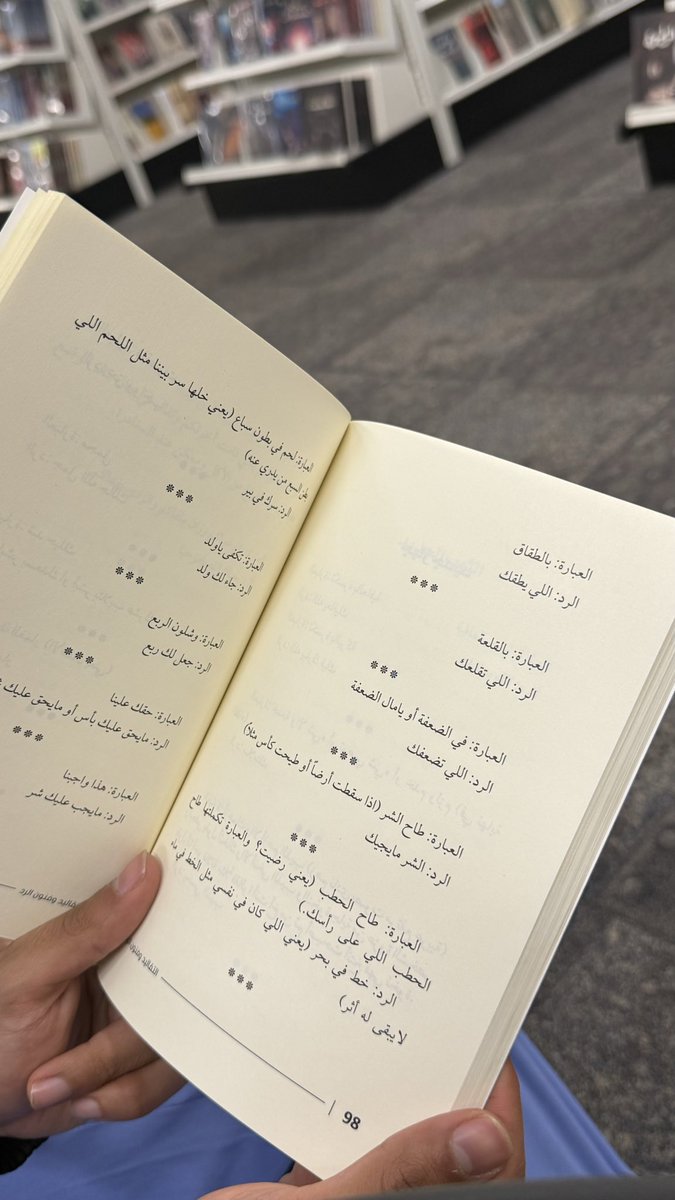 العبارة: بالطقاق
الرد: اللي يطقك
***
العبارة: بالقلعة
الرد: اللي تقلعك
***
العبارة: في الضعفة أو يامال الضعفة
الرد: اللي تضعفك
***
العبارة: طاح الشر (اذا سقطت أرضاً أو طيحت كأس مثلا)
الرد: الشر مايجيك
***
العبارة: طاح الحطب (يعني رضيت؟ والعبارة تكملتها طاح
الحطب اللي على رأسك.)
الرد: خط في بحر (يعني اللي كان في نفسي مثل الخط في ماء
لا يبقى له أثر)
***
98
العبارة: لحم في بطون سباع (يعني خلها سر بيننا مثل اللحم اللي
بطن السبع من يدري عنه)
الرد: سرك في بير
***
العبارة: تكفى ياولد
الرد: جاء لك ولد
***
العبارة: وشلون الربع
الرد: جعل لك ربع
***
العبارة: حقك علينا
الرد: مايحق عليك بأس أو مايحق عليك
***
العبارة: هذا واجبنا
الرد: مايجب عليك شر
وفنون الرد